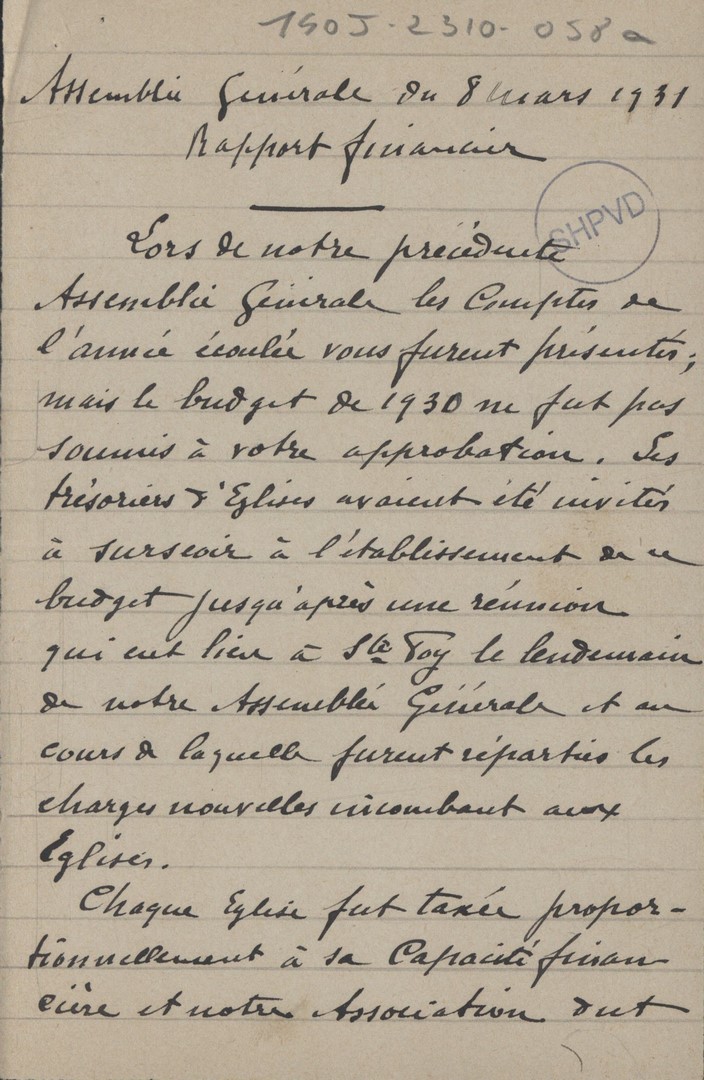 1905-2310-058a
Assemblée Générale du 8 mars 1931
Rapport financier
SHPVD
Lors de notre précédente
Assemblée Générale les Comptes de
l'année écoulée vous furent présentés;
mais le budget de 1930 ne fut pas
soumis à votre approbation. Les
trésoriers d'Eglises avaient été invités
à surseoir à l'établissement de ce
budget jusqu'après une réunion
qui eut lieu à Ste Foy le lendemain
de notre Assemblée Générale et au
cours de laquelle furent réparties les
charges nouvelles incombant aux
Eglises.
Chaque Eglise fut taxée propor-
tionnellement à sa Capacité finan
cière et notre Association dut